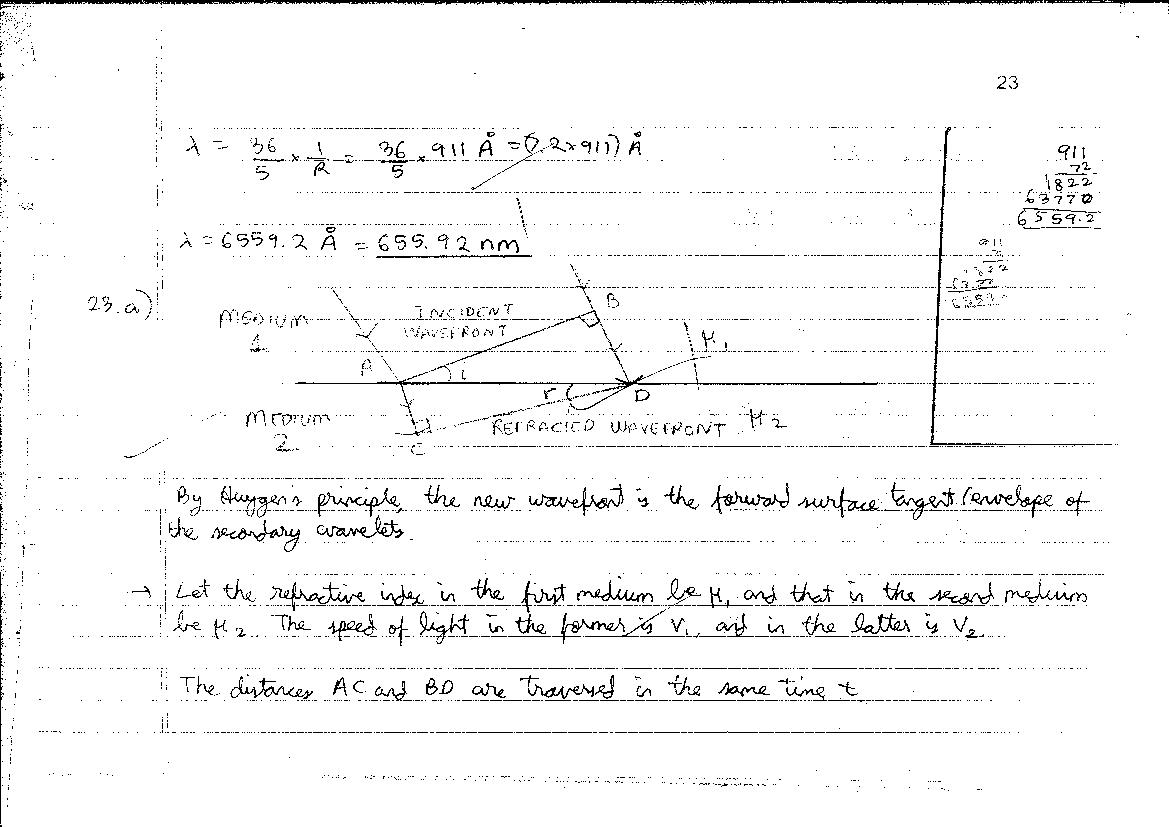 23
λ = 36/5 × 1/R = 36/5 × 911 Å = (7.2×911) Å
911
72
1822
63770
6559.2
λ = 6559.2 Å = 655.92 nm
911
23.a)
MEDIUM
1
INCIDENT
WAVEFRONT
B
A
i
μ1
r
D
MEDIUM
2
C
REFRACTED WAVEFRONT
μ2
By Huygen's principle, the new wavefront is the forward surface tangent/envelope of
the secondary wavelets.
→ Let the refractive index in the first medium be μ1 and that in the second medium
be μ2. The speed of light in the former is V1, and in the latter is V2.
The distances AC and BD are traversed in the same time t